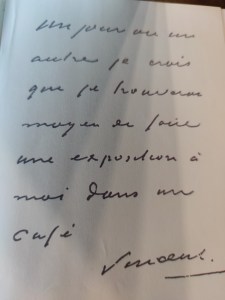 un jour ou un
autre je crois
que je trouverai
moyen de faire
une exposition à
moi dans un
café
Vincent.